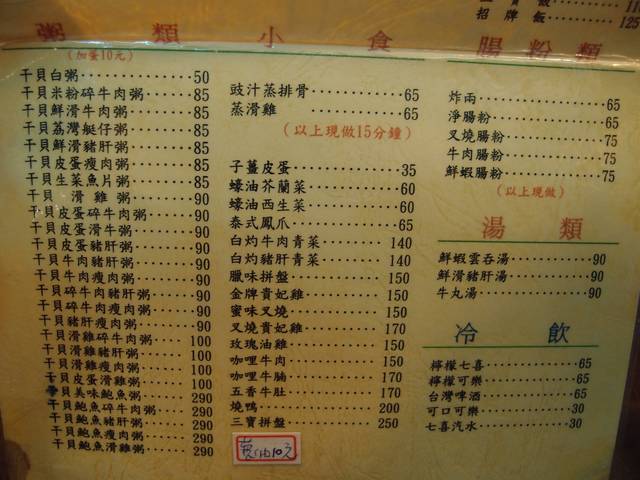 招牌飯 125
粥類
(加蛋10元)
干貝白粥 50
干貝米粉碎牛肉粥 85
干貝鮮滑牛肉粥 85
干貝荔灣艇仔粥 85
干貝鮮滑豬肝粥 85
干貝皮蛋瘦肉粥 85
干貝生菜魚片粥 85
干貝滑雞粥 90
干貝皮蛋碎牛肉粥 90
干貝皮蛋滑牛粥 90
干貝皮蛋豬肝粥 90
干貝牛肉豬肝粥 90
干貝牛肉瘦肉粥 90
干貝碎牛肉豬肝粥 90
干貝碎牛肉瘦肉粥 90
干貝豬肝瘦肉粥 90
干貝滑雞碎牛肉粥 100
干貝滑雞豬肝粥 100
干貝滑雞瘦肉粥 100
干貝皮蛋滑雞粥 100
干貝美味鮑魚粥 290
干貝鮑魚碎牛肉粥 290
干貝鮑魚豬肝粥 290
干貝鮑魚瘦肉粥 290
干貝鮑魚滑雞粥 290
小食
豉汁蒸排骨 65
蒸滑雞 65
(以上現做15分鐘)
子薑皮蛋 35
蠔油芥蘭菜 60
蠔油西生菜 60
泰式鳳爪 65
白灼牛肉青菜 140
白灼豬肝青菜 140
臘味拼盤 150
金牌貴妃雞 150
蜜味叉燒 150
叉燒貴妃雞 170
玫瑰油雞 150
咖哩牛肉 150
咖哩牛腩 170
五香牛肚 170
燒鴨 200
三寶拼盤 250
腸粉類
炸兩 65
淨腸粉 65
叉燒腸粉 75
牛肉腸粉 75
鮮蝦腸粉 75
(以上現做)
湯類
鮮蝦雲吞湯 90
鮮滑豬肝湯 90
牛丸湯 90
冷飲
檸檬七喜 65
檸檬可樂 65
台灣啤酒 65
可口可樂 30
七喜汽水 30